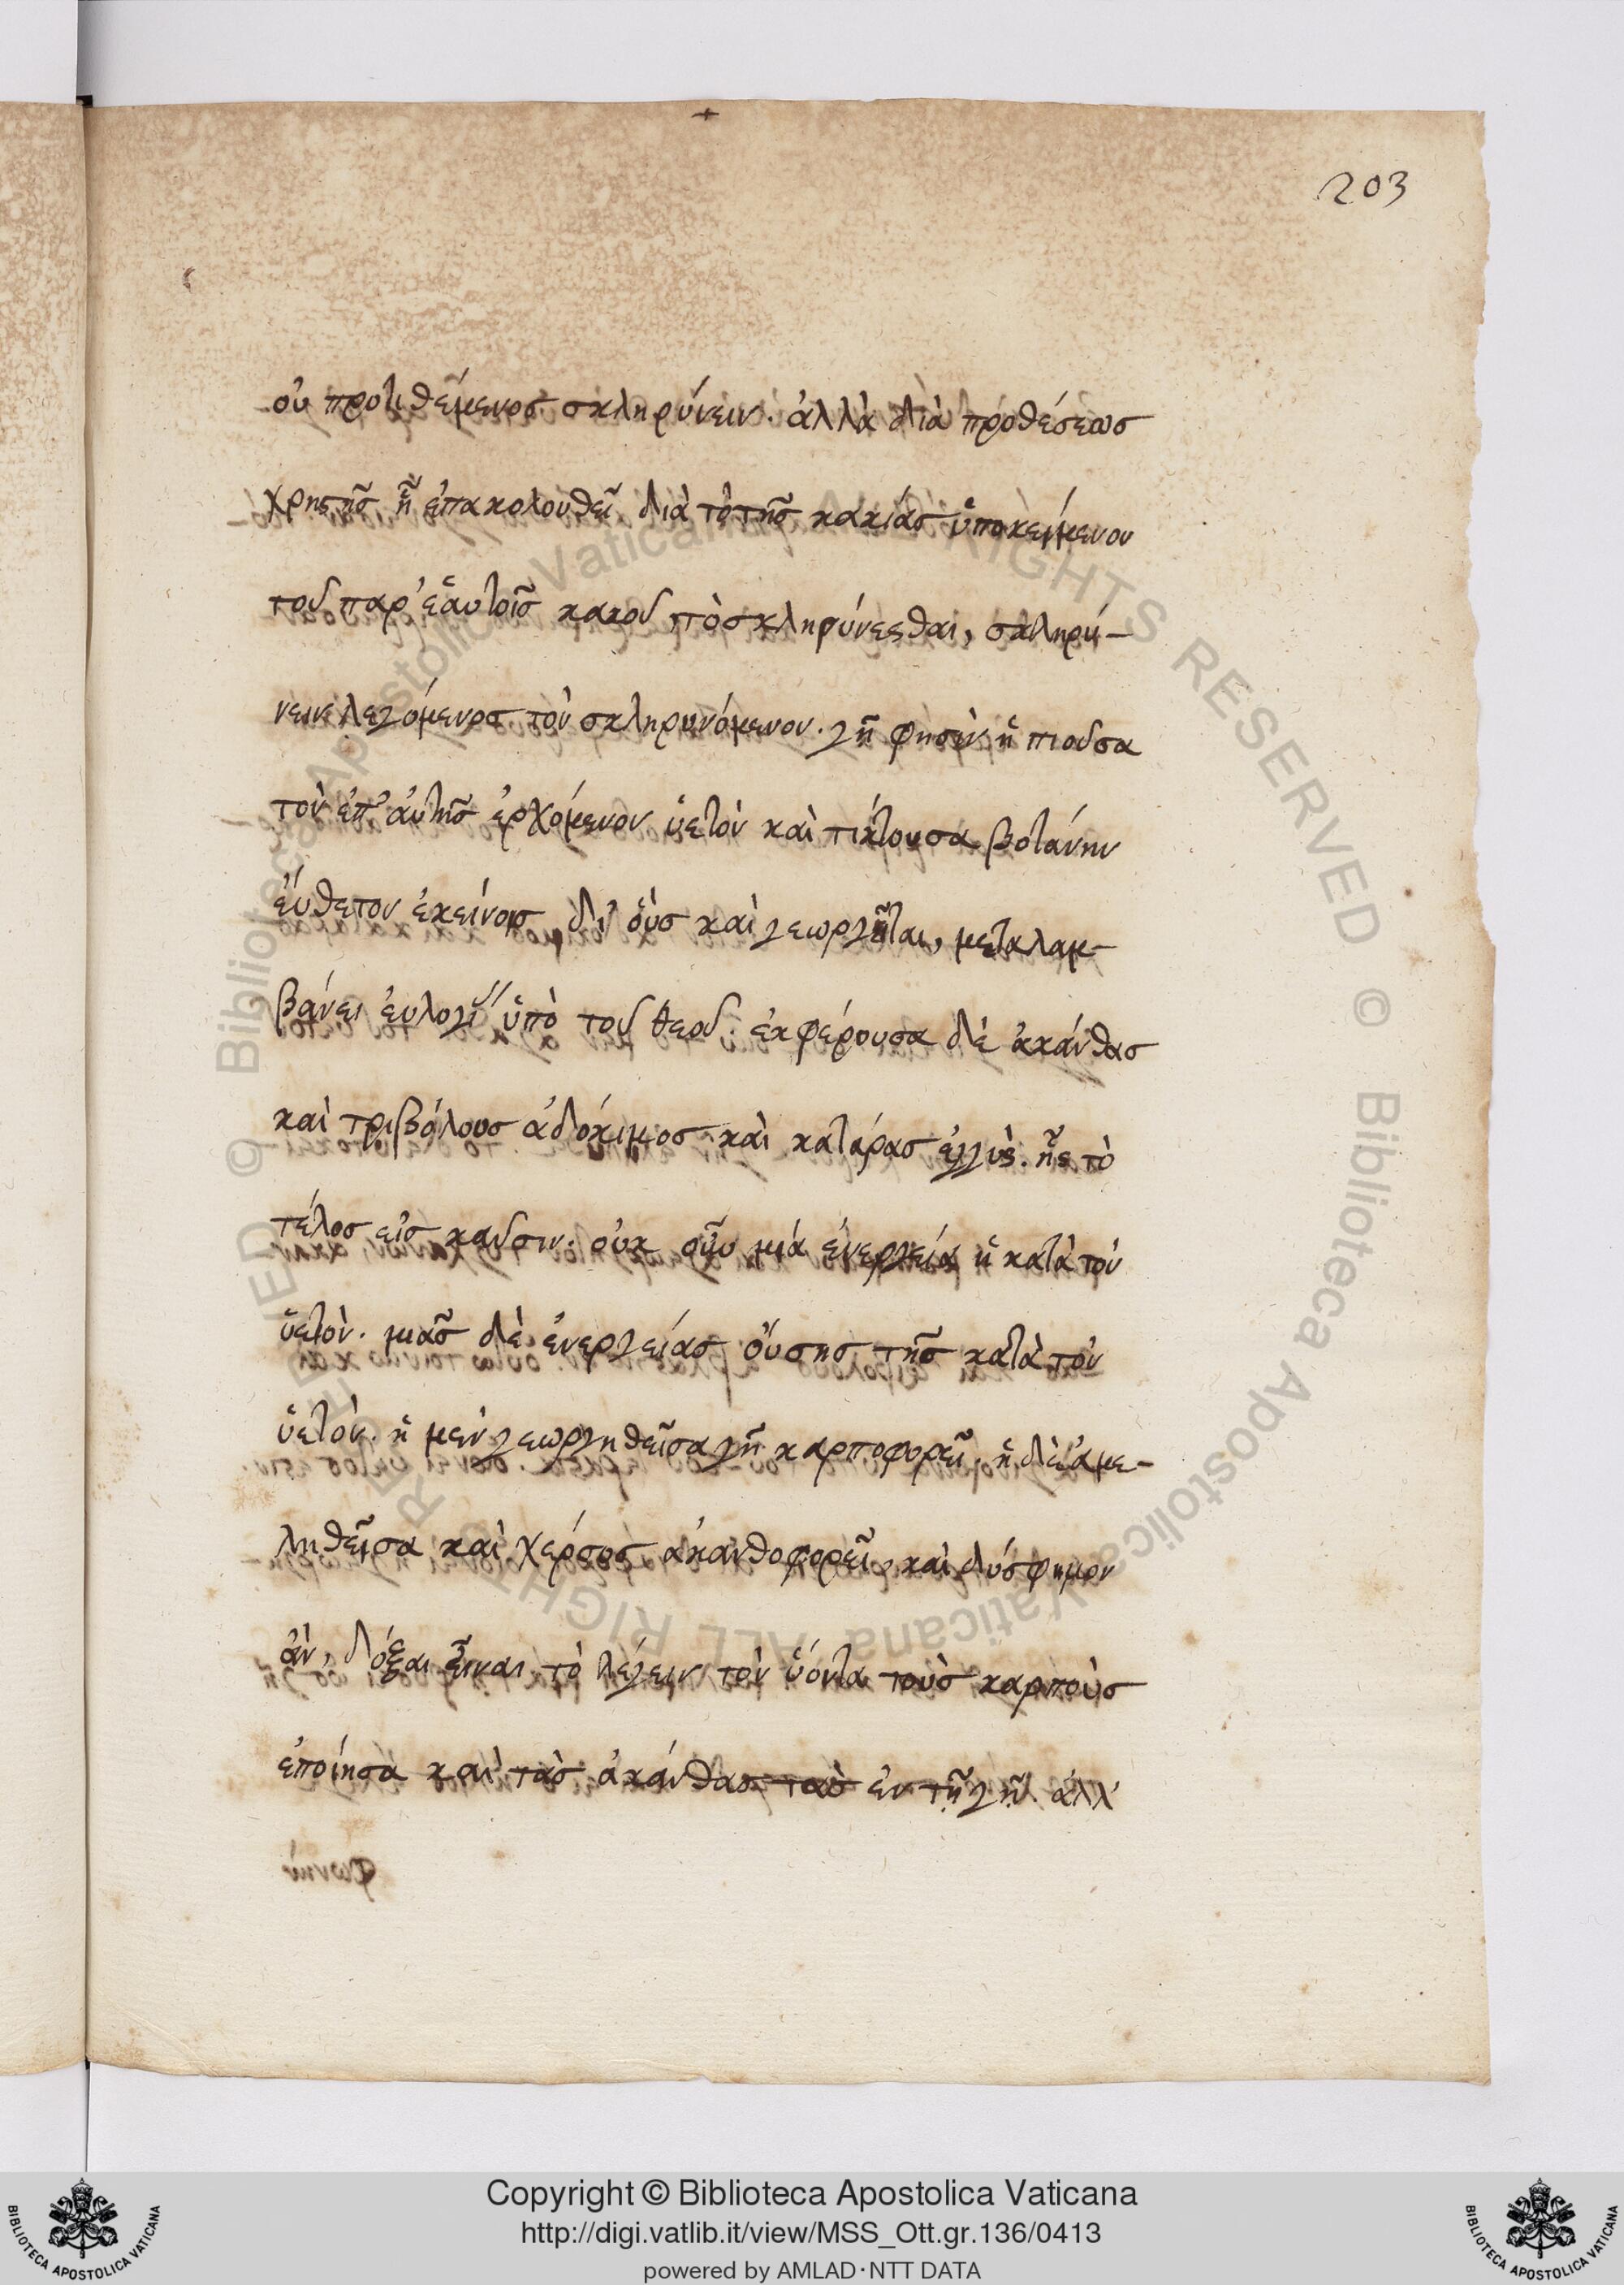 203
οὐ προτιθέμενος σκληρύνειν. ἀλλὰ διὰ προθέσεως
χρηστῆς, ᾗ ἐπακολουθεῖ διὰ τὸ τῆς κακίας ὑποκείμενον
τοῦ παρ' ἑαυτοῖς κακοῦ, τὸ σκληρύνεσθαι, σκληρύ-
νειν λεγόμενος τὸν σκληρυνόμενον. γῆ φησὶν ἡ πιοῦσα
τὸν ἐπ' αὐτῆς ἐρχόμενον ὑετὸν καὶ τίκτουσα βοτάνην
εὔθετον ἐκείνοις δι' οὓς καὶ γεωργεῖται, μεταλαμ-
βάνει εὐλογί<sup>′′</sup> ὑπὸ τοῦ θεοῦ. ἐκφέρουσα δὲ ἀκάνθας
καὶ τριβόλους ἀδόκιμος καὶ κατάρας ἐγγύς. ἧς τὸ
τέλος εἰς καῦσιν. οὐκ οὖν μιά ἐνεργεία ἡ κατὰ τὸν
ὑετὸν. μιᾶς δὲ ἐνεργείας οὔσης τῆς κατὰ τὸν
ὑετὸν. ἡ μὲν γεωργηθεῖσα γῆ καρποφορεῖ, ἡ δὲ ἀμε-
ληθεῖσα καὶ χέρσος ἀκανθοφορεῖ, καὶ δύσφημον
ἀν, δόξαι εἶναι τὸ λέγειν τὸν ὕοντα τοὺς καρποὺς
ἐποίησα καὶ τὰς ἀκάνθας τὰς ἐν τῇ γῇ. ἀλλ'
Copyright © Biblioteca Apostolica Vaticana
http://digi.vatlib.it/view/MSS_Ott.gr.136/0413
powered by AMLAD·NTT DATA
BIBLIOTECA APOSTOLICA VATICANA
BIBLIOTECA APOSTOLICA VATICANA
© Biblioteca Apostolica Vaticana ALL RIGHTS RESERVED © Biblioteca Apostolica Vaticana ALL RIGHTS RESERVED